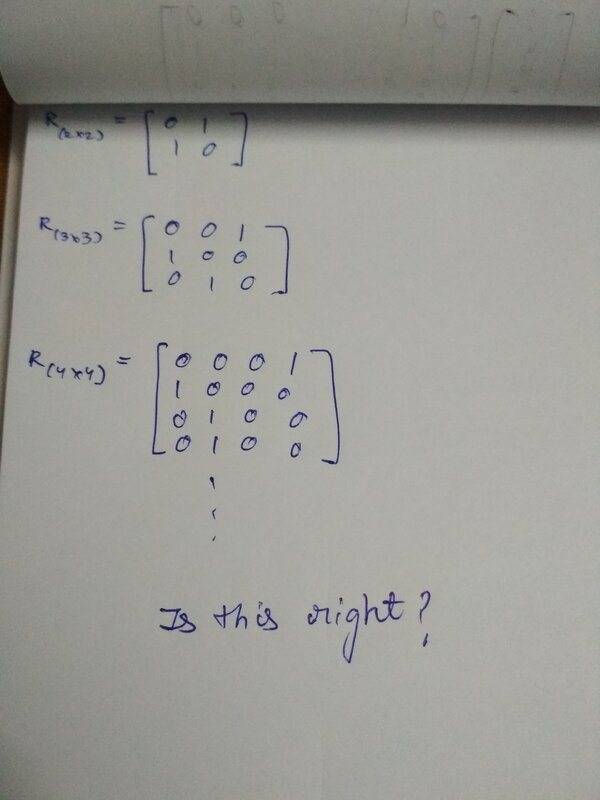 R(2x2) = [ 0 1
1 0 ]
R(3x3) = [ 0 0 1
1 0 0
0 1 0 ]
R(4x4) = [ 0 0 0 1
1 0 0 0
0 1 0 0
0 1 0 0 ]
Is this right?